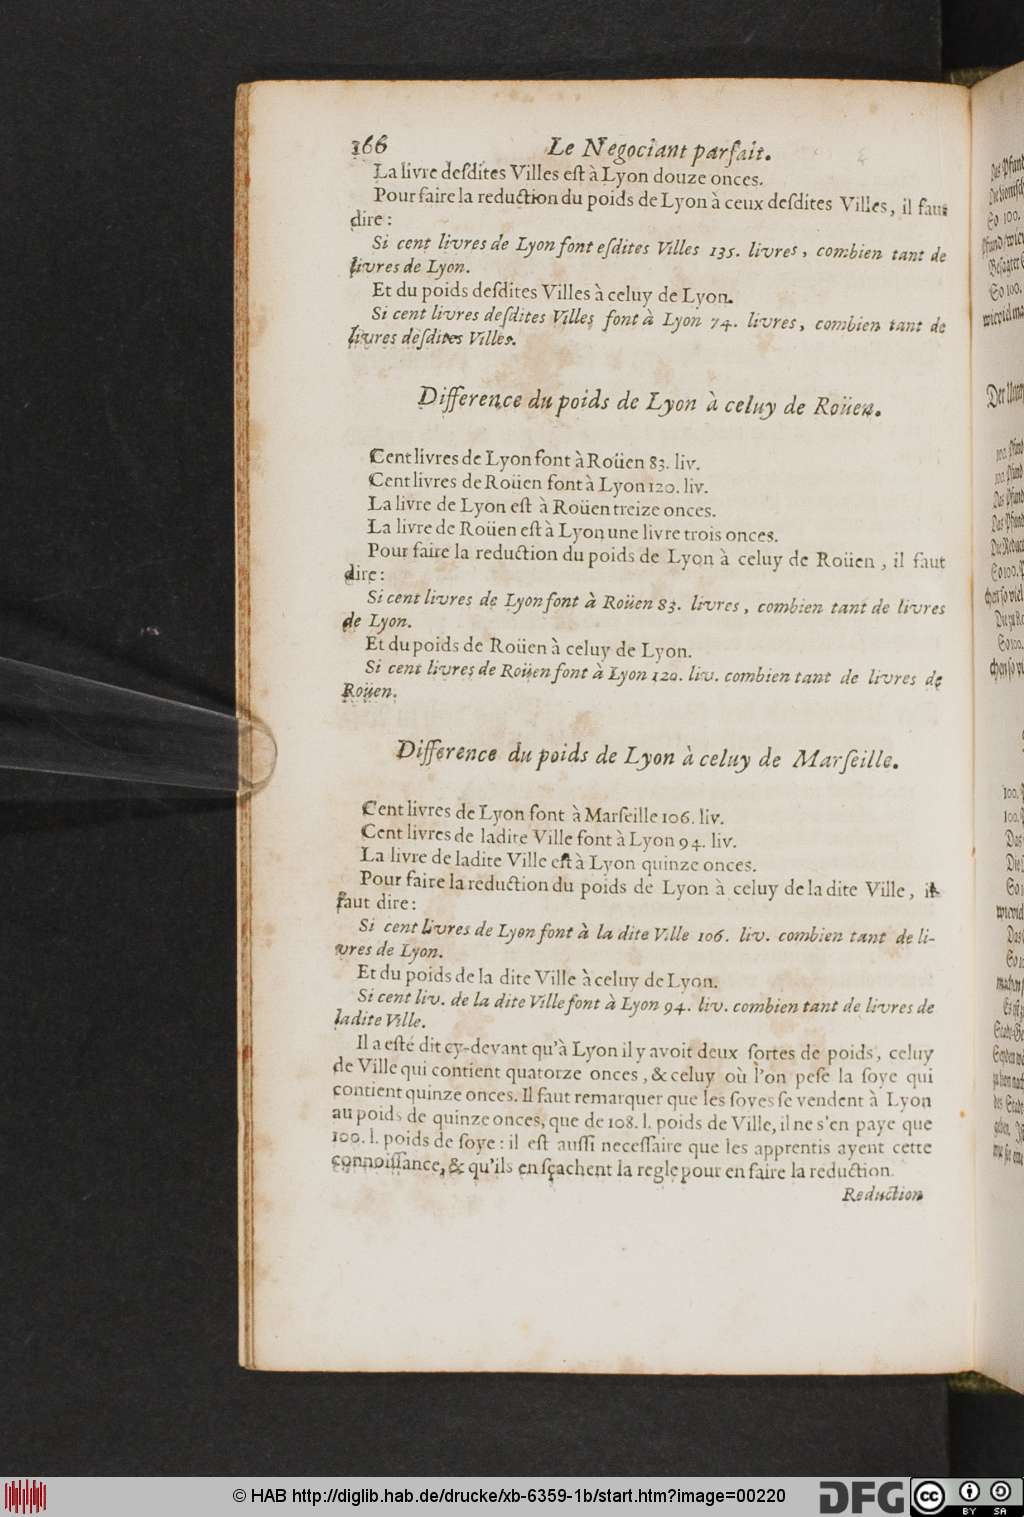 366 Le Negociant parfait.
La livre deſdites Villes eſt à Lyon douze onces.
Pour faire la reduction du poids de Lyon à ceux deſdites Villes, il faut
dire :
Si cent livres de Lyon font eſdites Villes 135. livres, combien tant de
livres de Lyon.
Et du poids deſdites Villes à celuy de Lyon.
Si cent livres deſdites Villes font à Lyon 74. livres, combien tant de
livres deſdites Villes.
Difference du poids de Lyon à celuy de Roüen.
Cent livres de Lyon font à Roüen 83. liv.
Cent livres de Roüen font à Lyon 120. liv.
La livre de Lyon eſt à Roüen treize onces.
La livre de Roüen eſt à Lyon une livre trois onces.
Pour faire la reduction du poids de Lyon à celuy de Roüen, il faut
dire :
Si cent livres de Lyon font à Roüen 83. livres, combien tant de livres
de Lyon.
Et du poids de Roüen à celuy de Lyon.
Si cent livres de Roüen font à Lyon 120. liv. combien tant de livres de
Roüen.
Difference du poids de Lyon à celuy de Marſeille.
Cent livres de Lyon font à Marſeille 106. liv.
Cent livres de ladite Ville font à Lyon 94. liv.
La livre de ladite Ville eſt à Lyon quinze onces.
Pour faire la reduction du poids de Lyon à celuy de la dite Ville, il
faut dire :
Si cent livres de Lyon font à la dite Ville 106. liv. combien tant de li-
vres de Lyon.
Et du poids de la dite Ville à celuy de Lyon.
Si cent liv. de la dite Ville font à Lyon 94. liv. combien tant de livres de
ladite Ville.
Il a eſté dit cy-devant qu'à Lyon il y avoit deux ſortes de poids, celuy
de Ville qui contient quatorze onces, & celuy où l'on peſe la ſoye qui
contient quinze onces. Il faut remarquer que les ſoyes ſe vendent à Lyon
au poids de quinze onces, que de 108. l. poids de Ville, il ne s'en paye que
100. l. poids de ſoye : il eſt auſſi neceſſaire que les apprentis ayent cette
connoiſſance, & qu'ils en ſçachent la regle pour en faire la reduction.
Reduction
© HAB http://diglib.hab.de/drucke/xb-6359-1b/start.htm?image=00220
DFG
cc BY SA